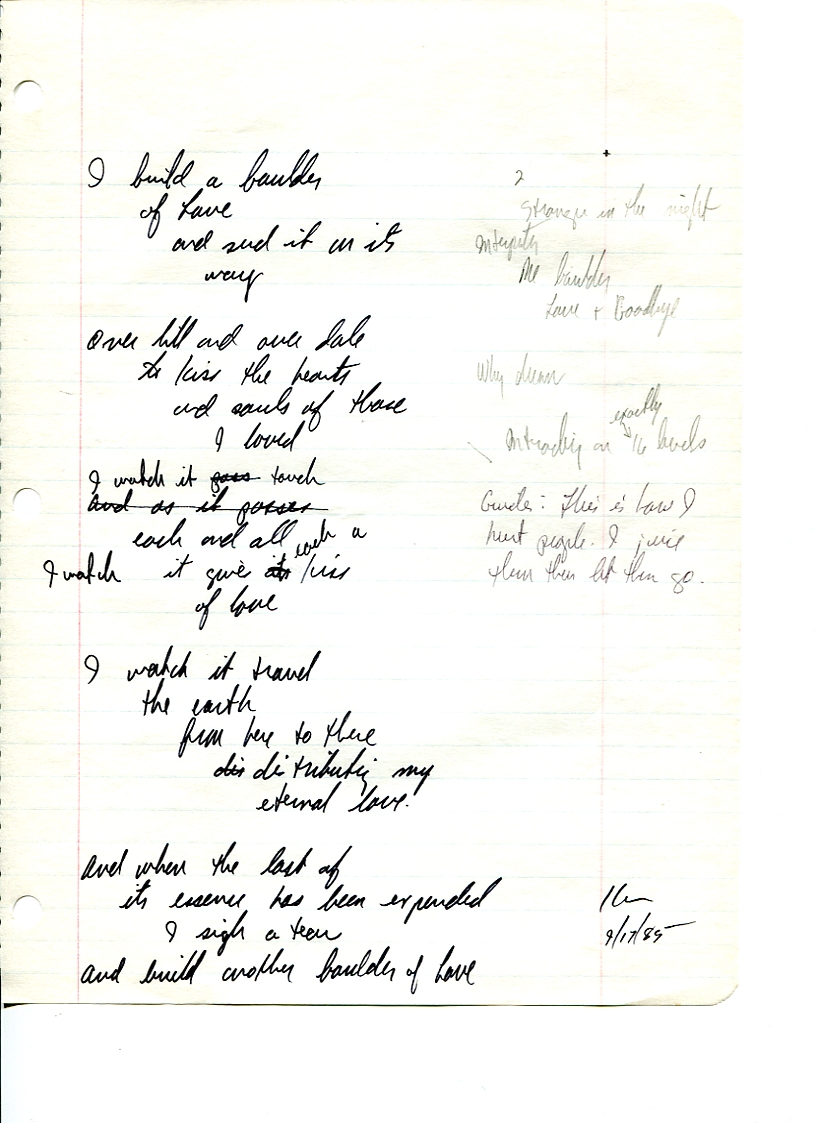 I build a boulder
of Love
and send it on its
way
Over hill and over dale
to kiss the hearts
and souls of those
I loved
I watch it pass touch
and as it passes
each and all
each a
I watch it give its kiss
of love
I watch it travel
the earth
from here to there
dis distributing my
eternal love.
And when the last of
its essence has been expended
I sigh a tear
And build another boulder of Love
9/17/85
2
Stranger in the night
Integrity
The boulder
Love + Goodbye
Why
exactly
on 16 levels
This is how I
hurt people. I
them then let them go.